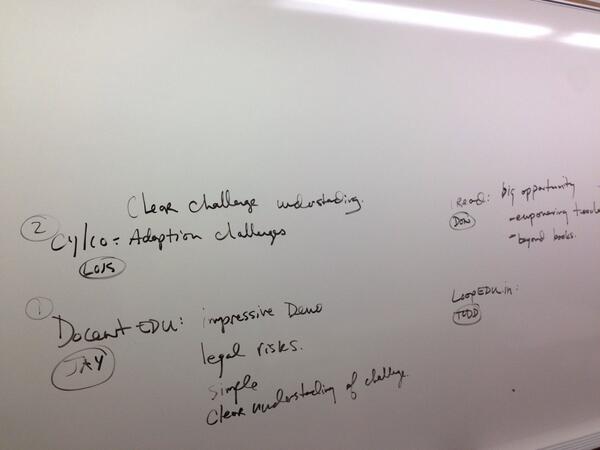 Clear challenge understanding.
②
Cy/co = Adoption challenges
LOIS
①
Docent EDU: impressive Demo
JAY
legal risks.
simple
Clear understanding of challenge.
iRead: big opportunity
DON
- empowering
- beyond books.
LoopEDU.in:
TODD